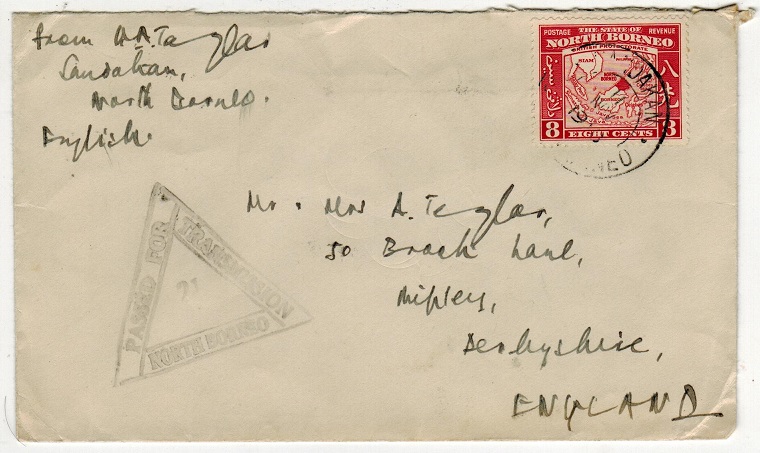 from W.A. Taylor
Sandakan,
North Borneo.
English.
POSTAGE THE STATE OF REVENUE
NORTH BORNEO
BRITISH PROTECTORATE
SIAM
NORTH BORNEO
8 EIGHT CENTS 8
八先
PASSED FOR
TRANSMISSION
NORTH BORNEO
21
Mr. Mrs A. Taylor,
50 Lane,
Ripley,
Derbyshire,
ENGLAND